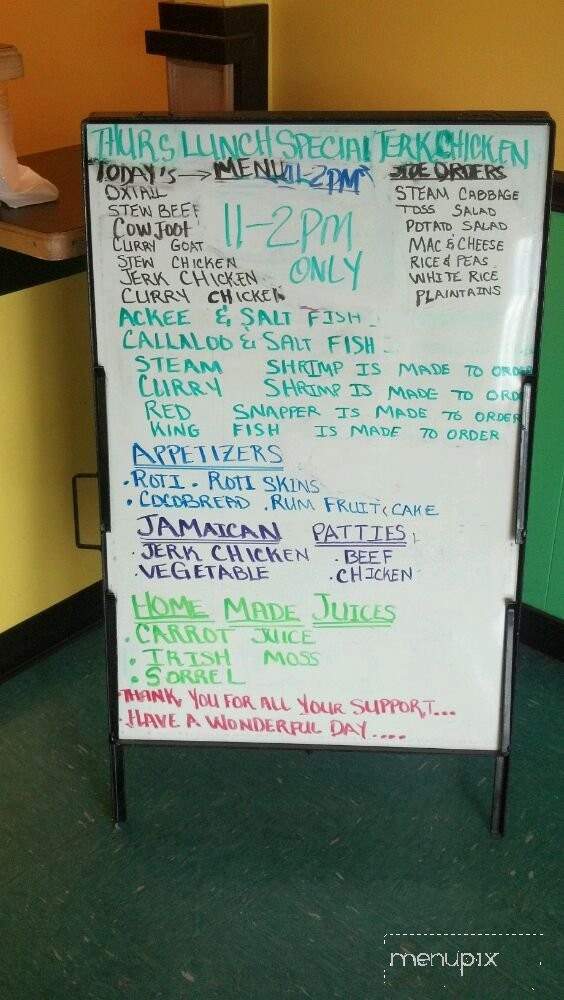 THURS LUNCH SPECIAL JERK CHICKEN
TODAY'S → MENU 2PM
OXTAIL
STEW BEEF
COW FOOT
CURRY GOAT
STEW CHICKEN
JERK CHICKEN
CURRY CHICKEN
11-2PM
ONLY
SIDE ORDERS
STEAM CABBAGE
TOSS SALAD
POTATO SALAD
MAC & CHEESE
RICE & PEAS
WHITE RICE
PLAINTAINS
ACKEE & SALT FISH
CALLALOO & SALT FISH
STEAM SHRIMP IS MADE TO ORDER
CURRY SHRIMP IS MADE TO ORD
RED SNAPPER IS MADE TO ORDER
KING FISH IS MADE TO ORDER
APPETIZERS
• ROTI • ROTI SKINS
• COCOBREAD • RUM FRUIT CAKE
JAMAICAN PATTIES
• JERK CHICKEN • BEEF
• VEGETABLE • CHICKEN
HOME MADE JUICES
• CARROT JUICE
• IRISH MOSS
• SORREL
THANK YOU FOR ALL YOUR SUPPORT...
HAVE A WONDERFUL DAY....
menupix